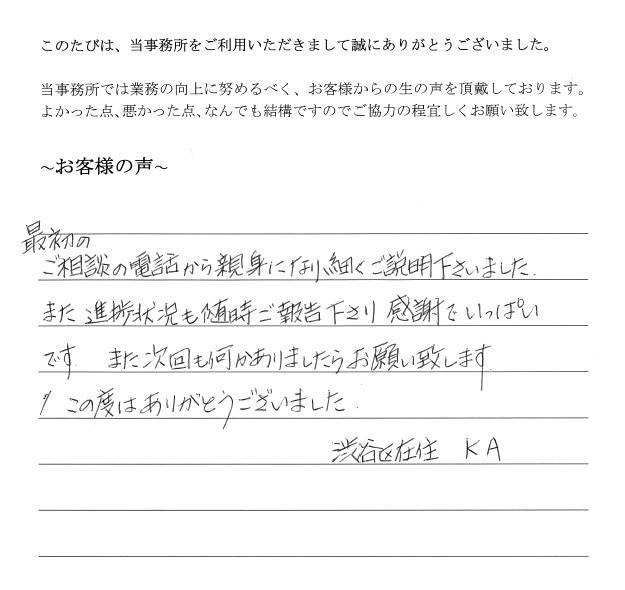 このたびは、当事務所をご利用いただきまして誠にありがとうございました。
当事務所では業務の向上に努めるべく、お客様からの生の声を頂戴しております。
よかった点、悪かった点、なんでも結構ですのでご協力の程宜しくお願い致します。
~お客様の声~
最初の
ご相談の電話から親身になり、細くご説明下さいました.
また進捗状況も随時ご報告下さり 感謝でいっぱい
です. また次回も何かありましたらお願い致します.
この度はありがとうございました.
渋谷区在住 KA